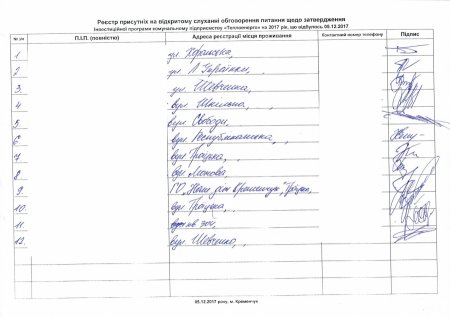 Реєстр присутніх на відкритому слуханні обговорення питання щодо затвердження
Інвестиційної програми комунальному підприємству «Теплоенерго» на 2017 рік, що відбулось 05.12.2017
№ з/п П.І.П. (повністю) Адреса реєстрації місця проживання Контактний номер телефону Підпис
1
2 ул. Л Українки,
3. ул. Шевченка
4 вул. Шкільна,
5 вул. Свободи,
6 вул. Республіканська,
7 вул. Троїцька,
8 вул.
9. ГО „Наш дім Кременчук"
10. вул. Троїцька,
11.
12. вул. Шевченко,
05.12.2017 року, м. Кременчук